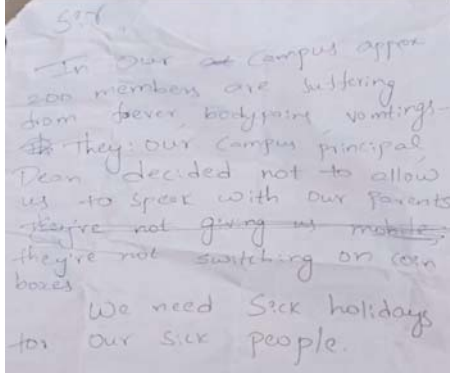 Sir
In our campus approx
200 members are suffering
from feever, bodypains, vomtings-
They: our campus principal,
Dean decided not to allow
us to speak with our parents
they're not giving us mobile,
they're not switching on coin
boxes
We need Sick holidays
for our sick people.